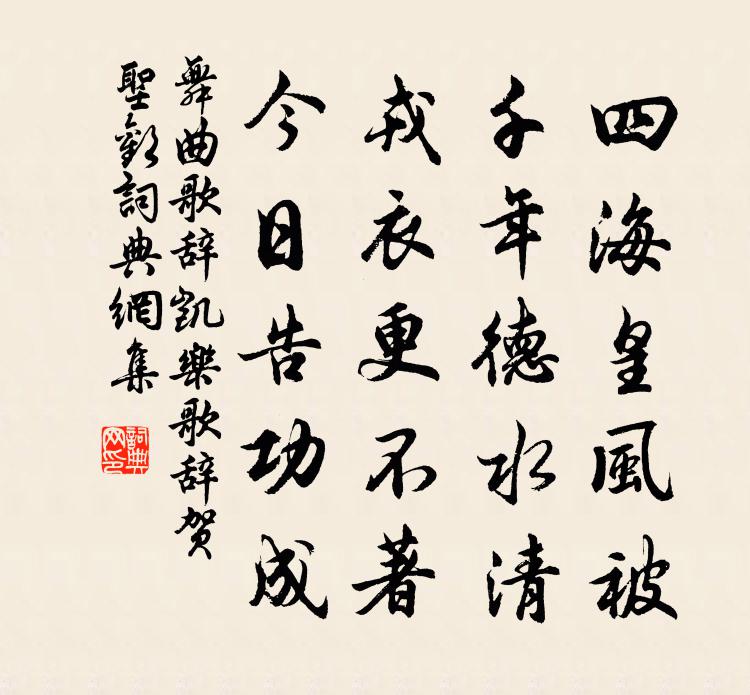 四海皇風被
千年德水清
戎衣更不著
今日告功成
舞曲歌辞凱樂歌辞贺
聖歡詞典網集
詞典
网印